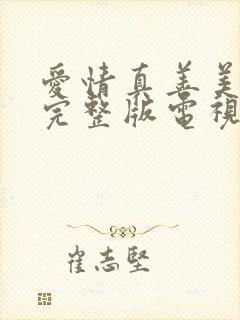 愛情真善美
完整版電視
崔志堅